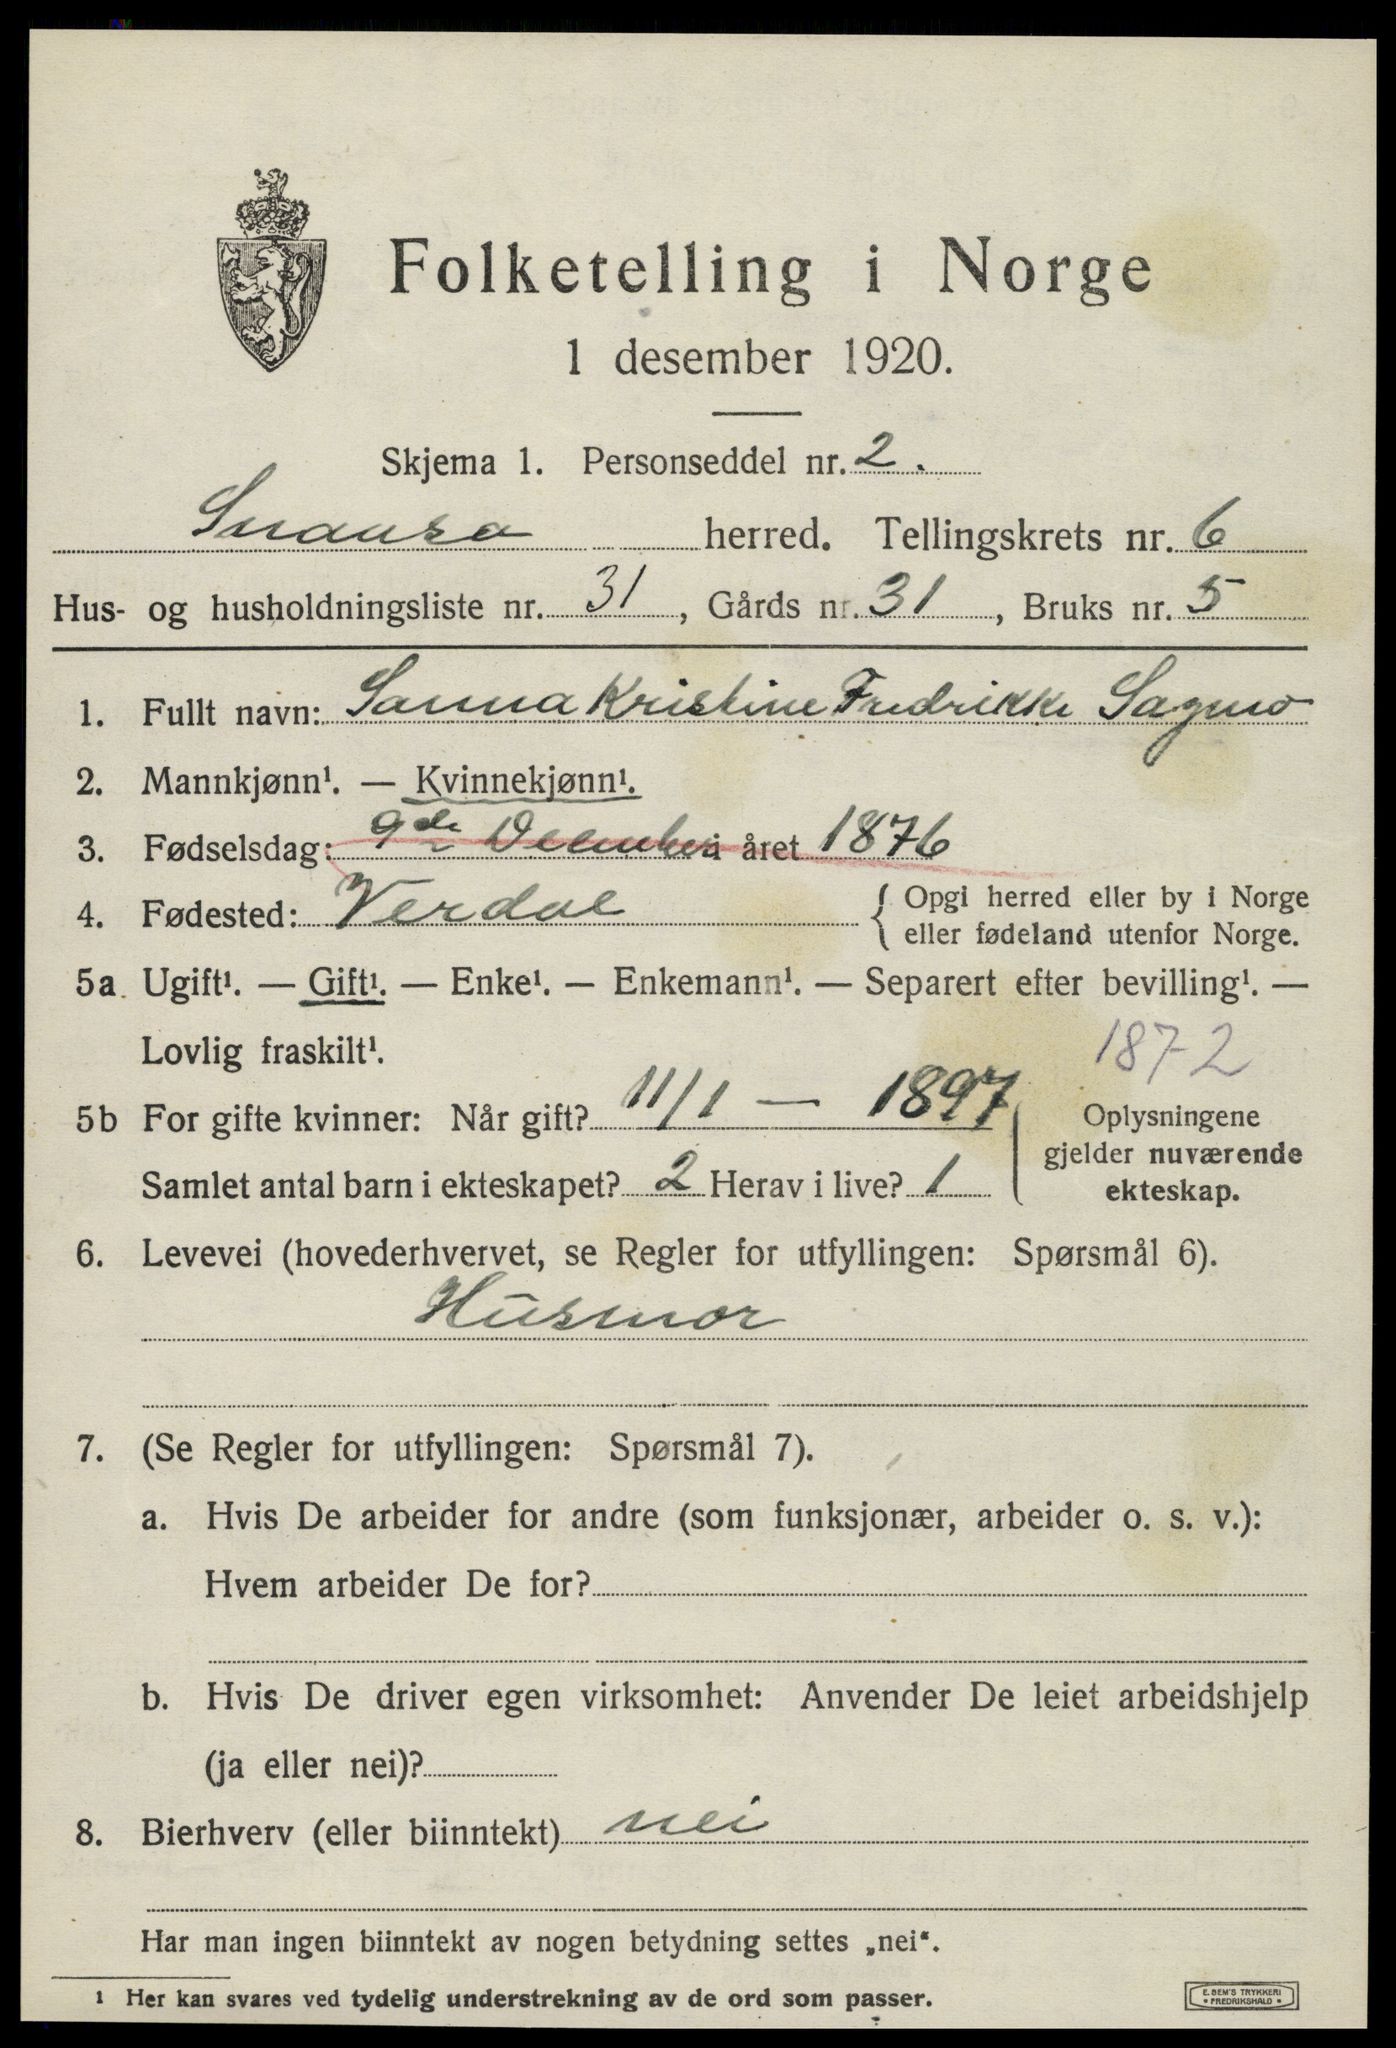 Folketelling i Norge
1 desember 1920.
Skjema 1. Personseddel nr. 2.
Snaasa herred. Tellingskrets nr. 6
Hus- og husholdningsliste nr. 31, Gårds nr. 31, Bruks nr. 5
1. Fullt navn: Sanna Kristine Fredrikke Sagmo
2. Mannkjønn¹. — Kvinnekjønn¹.
3. Fødselsdag: 9de December i året 1876
4. Fødested: Verdal { Opgi herred eller by i Norge
eller fødeland utenfor Norge.
5a Ugift¹. — Gift¹. — Enke¹. — Enkemann¹. — Separert efter bevilling¹. —
Lovlig fraskilt¹.
1872
5b For gifte kvinner: Når gift? 11/1 — 1897
Samlet antal barn i ekteskapet? 2 Herav i live? 1
Oplysningene
gjelder nuværende
ekteskap.
6. Levevei (hovederhvervet, se Regler for utfyllingen: Spørsmål 6).
Husmor
7. (Se Regler for utfyllingen: Spørsmål 7).
a. Hvis De arbeider for andre (som funksjonær, arbeider o. s. v.):
Hvem arbeider De for?
b. Hvis De driver egen virksomhet: Anvender De leiet arbeidshjelp
(ja eller nei)?
8. Bierhverv (eller biinntekt) nei
Har man ingen biinntekt av nogen betydning settes „nei“.
1 Her kan svares ved tydelig understrekning av de ord som passer.
E. SEM'S TRYKKERI
• FREDRIKSHALD •